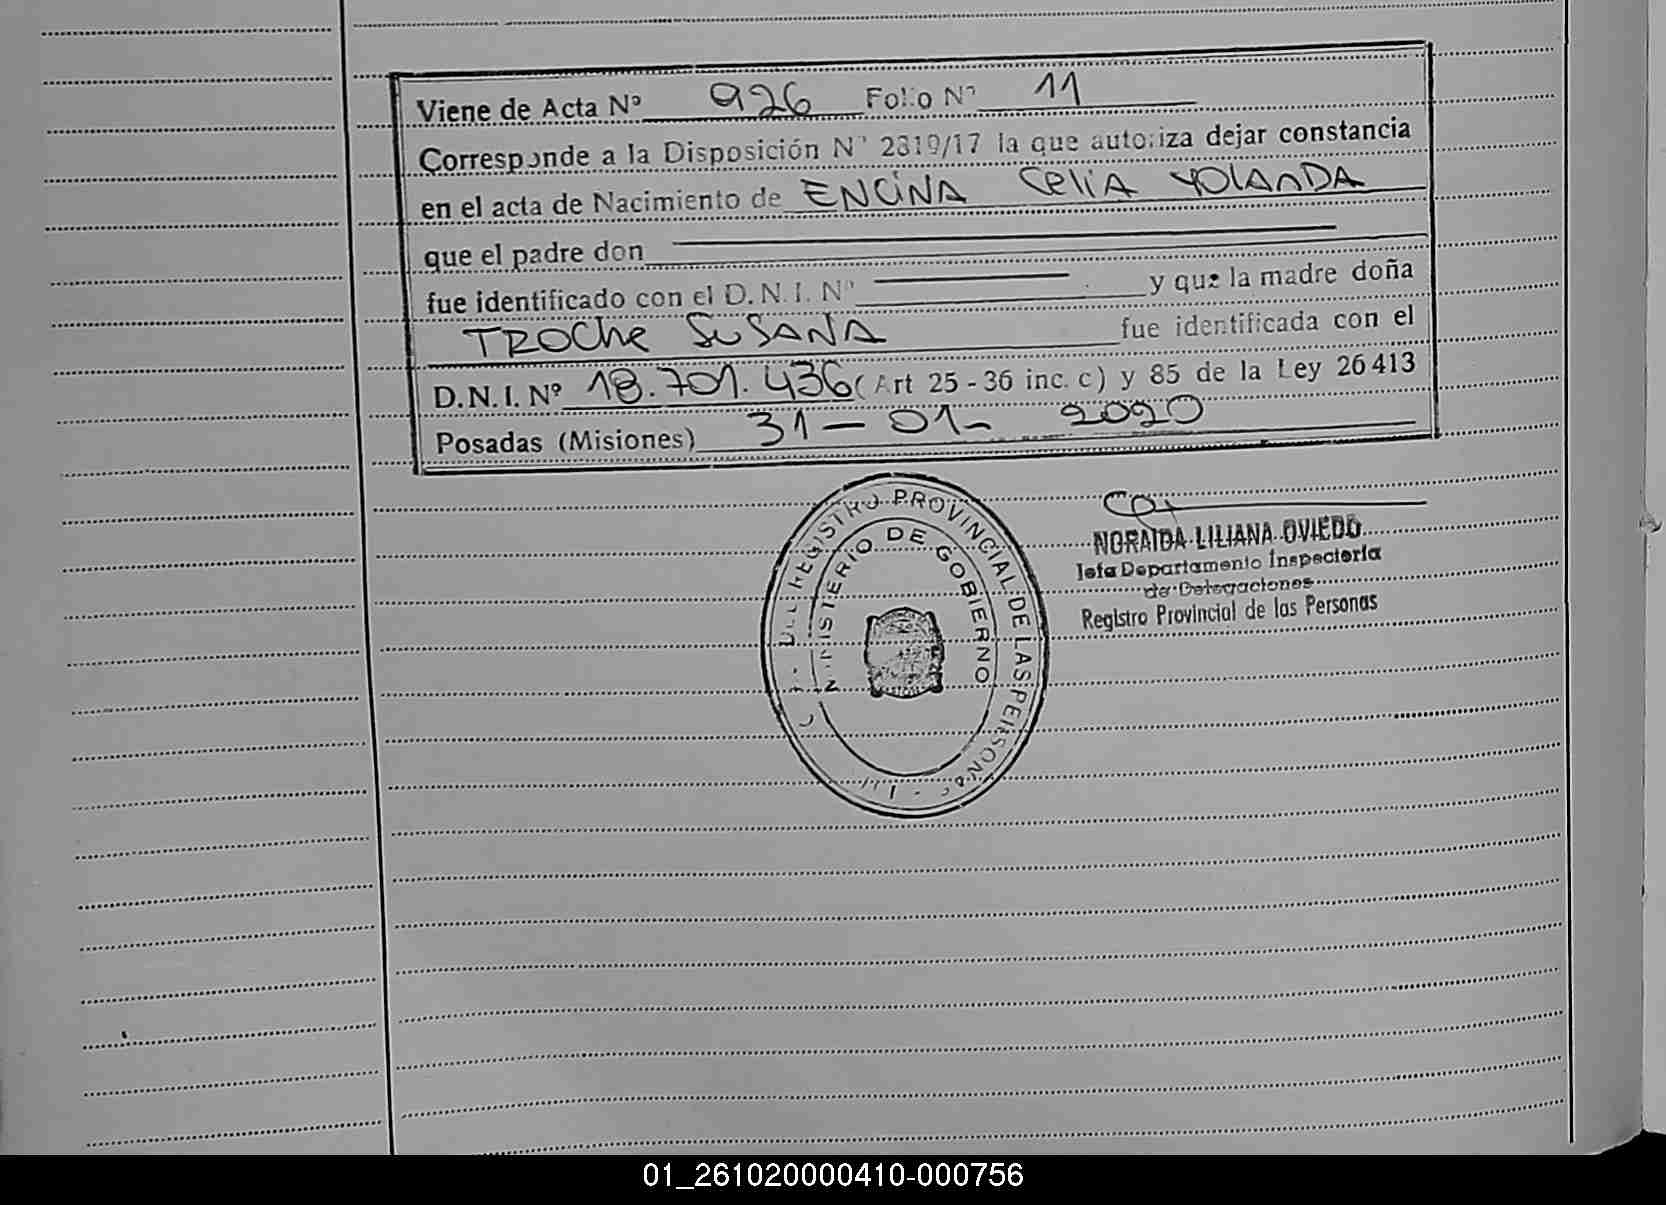 Viene de Acta Nº 926 Folio Nº 11
Corresponde a la Disposición Nº 2319/17 la que autoriza dejar constancia
en el acta de Nacimiento de ENCINA CeliA YOLANDA
que el padre don
fue identificado con el D. N. I. Nº y que la madre doña
TROChe SUSANA fue identificada con el
D. N. I. Nº 18.701.436 (Art 25 - 36 inc. c) y 85 de la Ley 26 413
Posadas (Misiones) 31 - 01 - 2020
REGISTRO PROVINCIAL DE LAS PERSONAS
MINISTERIO DE GOBIERNO
NORAIDA LILIANA OVIEDO
Jefa Departamento Inspectoria
de Delegaciones
Registro Provincial de las Personas
01_261020000410-000756